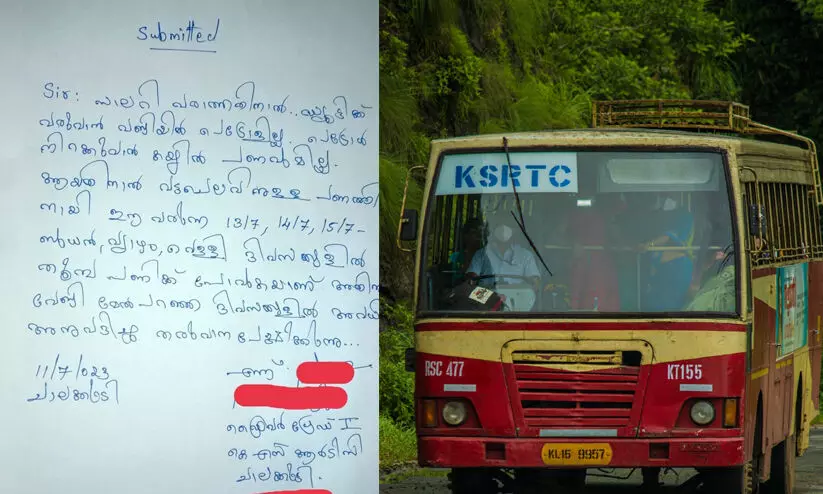 Submitted
Sir: സാലറി വരാത്തതിനാൽ.. ഡ്യൂട്ടിക്ക്
വരുവാൻ വണ്ടിയിൽ പെട്രോളില്ല. പെട്രോൾ
നിറക്കുവാൻ കയ്യിൽ പണവുമില്ല.
ആയതിനാൽ വട്ടചെലവിനുള്ള പണത്തി
നായി ഈ വരുന്ന 13/7, 14/7, 15/7-
ബുധൻ, വ്യാഴം, വെള്ളി ദിവസങ്ങളിൽ
തൂമ്പ പണിക്ക് പോവുകയാണ് അതിന്
വേണ്ടി മേൽപറഞ്ഞ ദിവസങ്ങളിൽ അവധി
അനുവദിച്ചു തരുവാനപേക്ഷിക്കുന്നു...
എന്ന്
11/7/023
ചാലക്കുടി
ഡ്രൈവർ ഗ്രേഡ് II
കെ എസ് ആർടിസി
ചാലക്കുടി.
KSRTC
RSC 477
KT155
KL15 9957